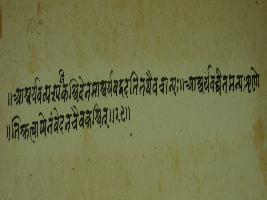 ॥आश्चर्यवत्पश्यतिकश्चिदेनमाश्चर्यवद्वदतितथैवचान्यः॥आश्चर्यवच्चैनमन्यःशृणो
॥तिश्रुत्वाप्येनंवेदनचैवकश्चित्॥२९॥